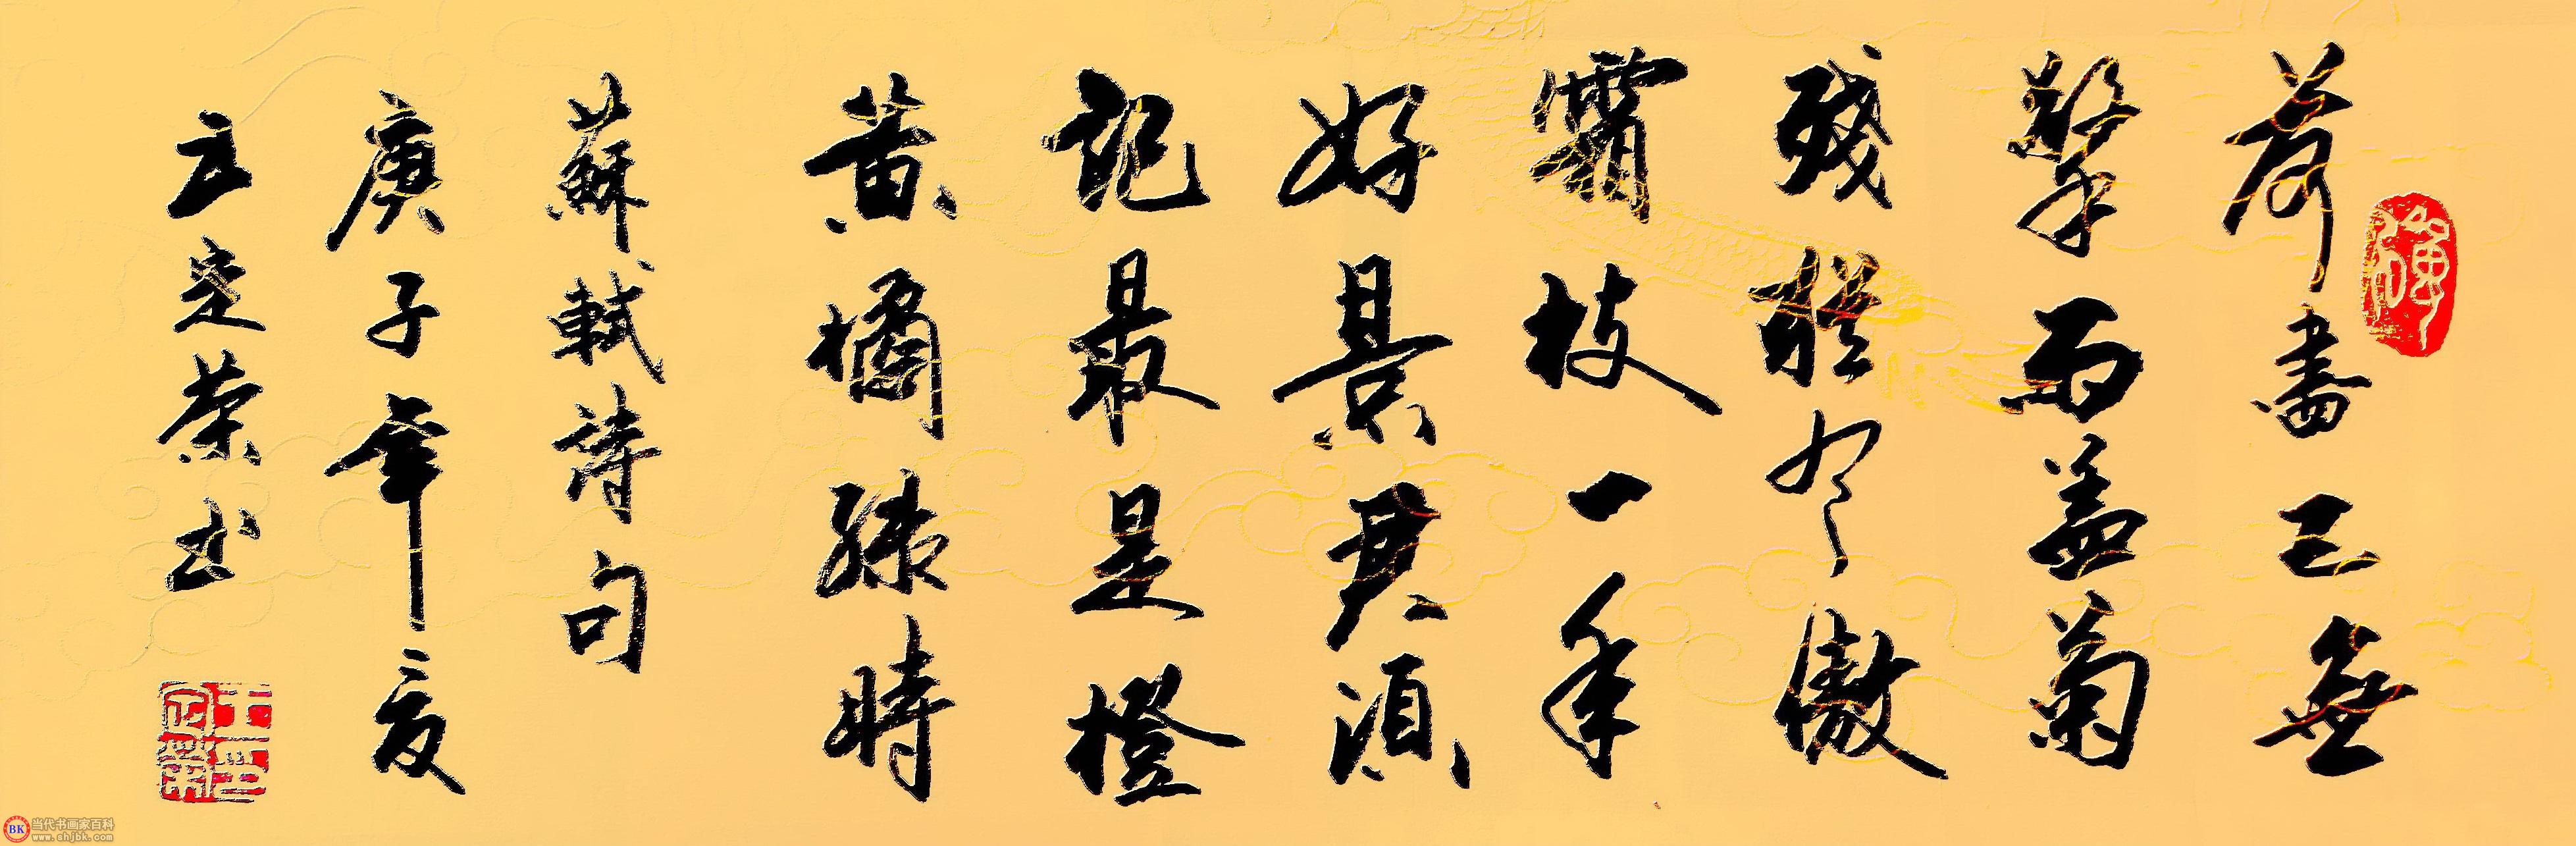 荷盡已無
擎雨盖菊
殘猶有傲
霜枝一年
好景君須
記最是橙
黄橘緑時
蘇軾詩句
庚子年夏
王定荣书
BK
当代书画家百科
www.shjbk.com